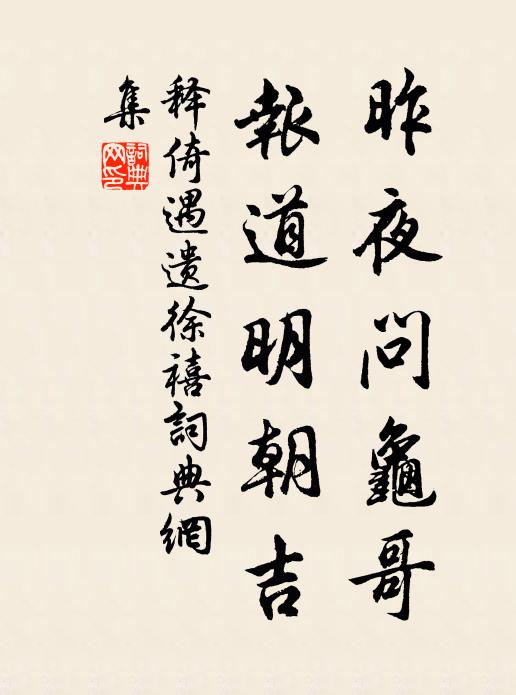 昨夜問龜哥
報道明朝吉
释倚遇遗徐禧詞典網
集
詞典
网印